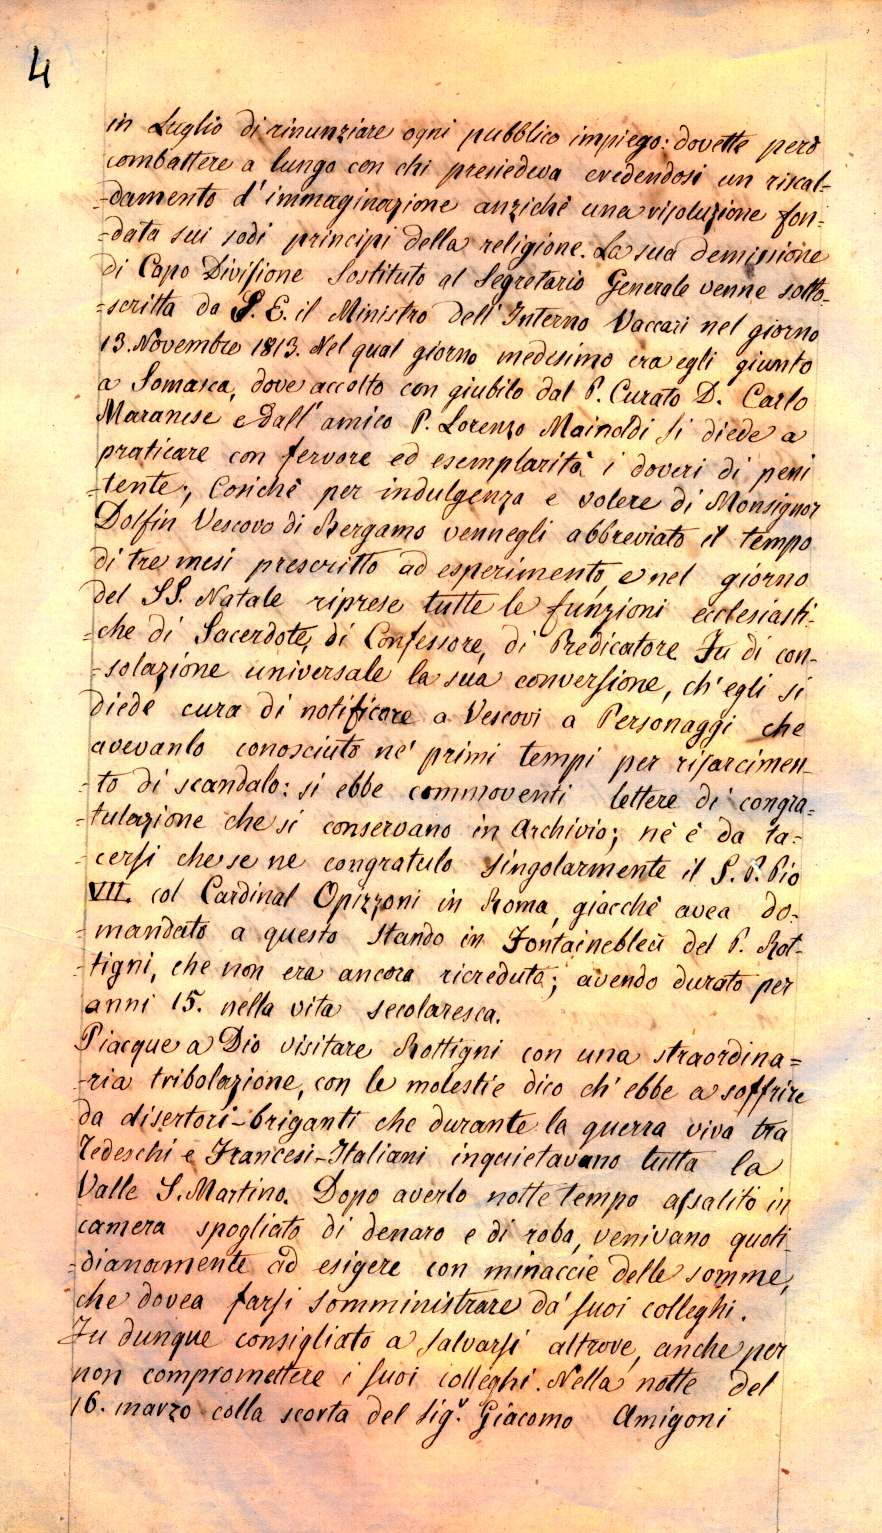 4
in Luglio di rinunziare ogni pubblico impiego: dovette però
combattere a lungo con chi presiedeva credendosi un riscal-
-damento d'immaginazione anzichè una risoluzione fon-
-data sui sodi principi della religione. La sua demissione
di Capo Divisione Sostituto al Segretario Generale venne sotto-
-scritta da S. E. il Ministro dell'Interno Vaccari nel giorno
13. Novembre 1813. Nel qual giorno medesimo era egli giunto
a Somasca, dove accolto con giubilo dal P. Curato D. Carlo
Maranese e dall'amico P. Lorenzo Mainoldi si diede a
praticare con fervore ed esemplarità i doveri di peni
-tente; Cosichè per indulgenza e volere di Monsignor
Dolfin Vescovo di Bergamo vennegli abbreviato il tempo
di tre mesi prescritto ad esperimento, e nel giorno
del SS. Natale riprese tutte le funzioni ecclesiasti-
-che di Sacerdote, di Confessore, di Predicatore. Fu di con-
-solazione universale la sua conversione, ch'egli si
diede cura di notificare a Vescovi a Personaggi che
avevanlo conosciuto ne' primi tempi per risarcimen-
-to di scandalo: si ebbe commoventi lettere di congra-
-tulazione che si conservano in Archivio; nè è da ta-
-cersi che se ne congratulo singolarmente il S. P. Pio
VII. col Cardinal Opizzoni in Roma, giacchè avea do-
-mandato a questo stando in Fontainebleù del P. Rot-
-tigni, che non era ancora ricreduto; avendo durato per
anni 15. nella vita secolaresca.
Piacque a Dio visitare Rottigni con una straordina=
-ria tribolazione, con le molestie dico ch'ebbe a soffrire
da disertori-briganti che durante la guerra viva tra
Tedeschi e Francesi-Italiani inquietavano tutta la
Valle S. Martino. Dopo averlo notte tempo assalito in
camera spogliato di denaro e di roba, venivano quoti-
-dianamente ad esigere con minaccie delle somme,
che dovea farsi somministrare da' suoi colleghi.
Fu dunque consigliato a salvarsi altrove, anche per
non compromettere i suoi colleghi. Nella notte del
16. marzo colla scorta del Sig.r Giacomo Amigoni